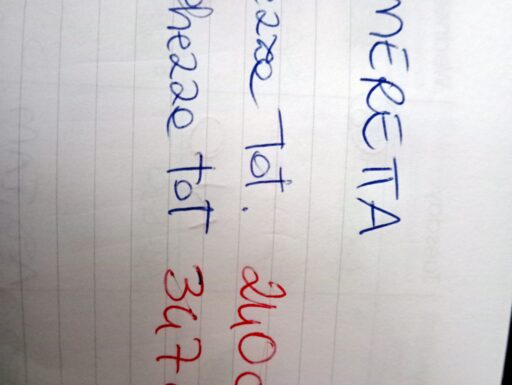 MERETTA
ezze Tot. 240
ghezze Tot 347